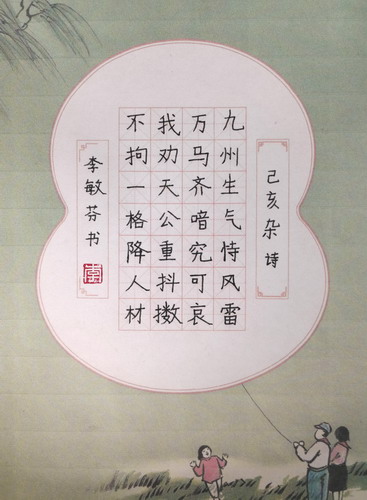 己亥杂诗
九州生气恃风雷
万马齐喑究可哀
我劝天公重抖擞
不拘一格降人材
李敏芬书
李